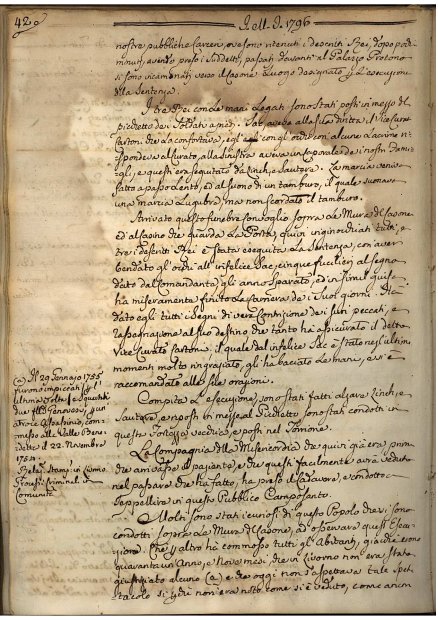 420
1796
nostre pubbliche Carceri, ove sono ritenuti i descritti Rei, dopo pochi
minuti, avendo preso i suddetti, passati davanti al Palazzo Pretorio
si sono incamminati verso il Casone Luogo designato per l'esecuzione
della Sentenza.
I tre Rei con le mani Legate sono stati posti in mezzo del
picchetto dei Soldati armati. Sac aveva alla sua diritta il Vice Curato
Cartoni che lo confortava, egli con gli occhi con alcune Lacrime ri-
spondeva al Curato, alla sinistra aveva un Caporale dei nostri
e questi era seguitato da Linch, e Sautera. La marcia veniva
fatta a passo Lento, ed al suono di un tamburo, il quale suonava
una marcia Lugubre, ma non scordato il tamburo.
Arrivato questo funebre convoglio sopra Le Mura del Casone
ed al casino che guarda La Porta, quivi inginocchiati tutti, e
tre i descritti Rei è stata eseguita La Sentenza, con aver
bendato gli occhi all'infelice Sac, cinque fucilieri al segno
dato dal Comandante gli anno sparato, ed in simil guisa
ha miseramente finito La Carriera de' suoi giorni. Ha
dato egli tutti i segni di vera Contrizione dei suoi peccati, e
rassegnazione al suo destino che tanto ha assicurato il detto
Vice Curato Cartoni, il quale dal infelice Sac è stato negl'ultimi
momenti molto ringraziato, gli ha baciato Le mani, e si è
raccomandato alle sue orazioni.
Compita L'esecuzione, sono stati fatti alzare Linch, e
Sautera, e riposti in mezzo al Picchetto sono stati condotti in
questa Fortezza vecchia, e posti nel Torrione.
La Compagnia della Misericordia che quivi già era, prima
che arrivasse il paziente, e che questi facilmente avrà veduto
nel passare che ha fatto, ha preso il Cadavere, e condotto
a seppellire in questo Pubblico Camposanto.
Molti sono stati i curiosi di questo Popolo che si sono
condotti sopra Le Mura del Casone, ad osservare questa Esecu-
zione che per altro ha commosso tutti gli Abitanti, giacché erono
quarantun'Anno, e Nove mesi che in Livorno non era stato
giustiziato alcuno (a) e che oggi non s'aspettava tale spet-
tacolo si perché non era noto come si è veduto, come ancora
(a) Il 29 Gennajo 1755
furono impiccati per l'
ultima volta
due
Genovesi, per un
atroce assassinio, com-
messo alla Valle Bene-
detta il 22. Novembre
1754.
in Livorno
Processi Criminali
Comunità